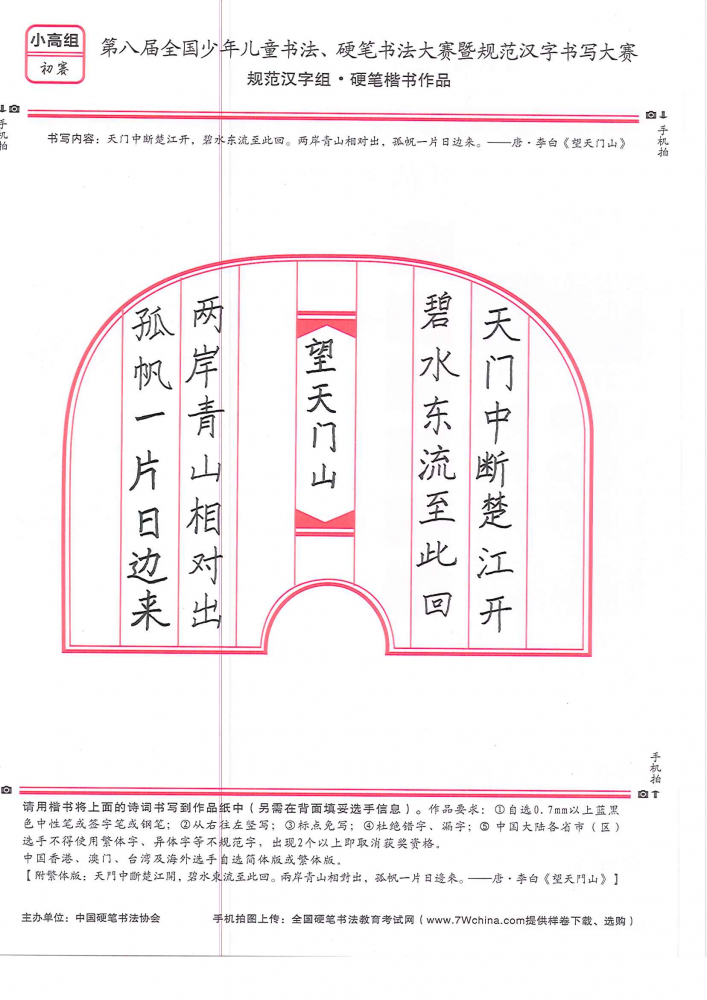 小高组
初赛
第八届全国少年儿童书法、硬笔书法大赛暨规范汉字书写大赛
规范汉字组·硬笔楷书作品
手机拍
手机拍
书写内容：天门中断楚江开，碧水东流至此回。两岸青山相对出，孤帆一片日边来。——唐·李白《望天门山》
天门中断楚江开
碧水东流至此回
望天门山
两岸青山相对出
孤帆一片日边来
手机拍
请用楷书将上面的诗词书写到作品纸中（另需在背面填妥选手信息）。作品要求：①自选0.7mm以上蓝黑
色中性笔或签字笔或钢笔；②从右往左竖写；③标点免写；④杜绝错字、漏字；⑤中国大陆各省市（区）
选手不得使用繁体字、异体字等不规范字，出现2个以上即取消获奖资格。
中国香港、澳门、台湾及海外选手自选简体版或繁体版。
【附繁体版：天門中斷楚江開，碧水東流至此回。兩岸青山相對出，孤帆一片日邊來。——唐·李白《望天門山》】
主办单位：中国硬笔书法协会
手机拍图上传：全国硬笔书法教育考试网（www.7Wchina.com提供样卷下载、选购）